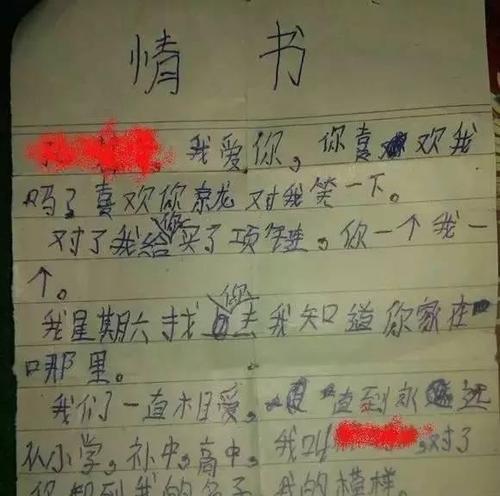 情书
我爱你，你喜欢我
吗？喜欢你就对我笑一下。
对了我给你买了项链，你一个我一
个。
我星期六找你去我知道你家在
哪里。
我们一直相爱，直到永远
从小学，初中，高中，我叫，对了
你知到我的名子，我的模样。